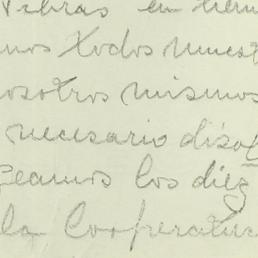 en
mos todos nuest
osotros mismos
necesario disol
seamos los diez
la Cooperativa